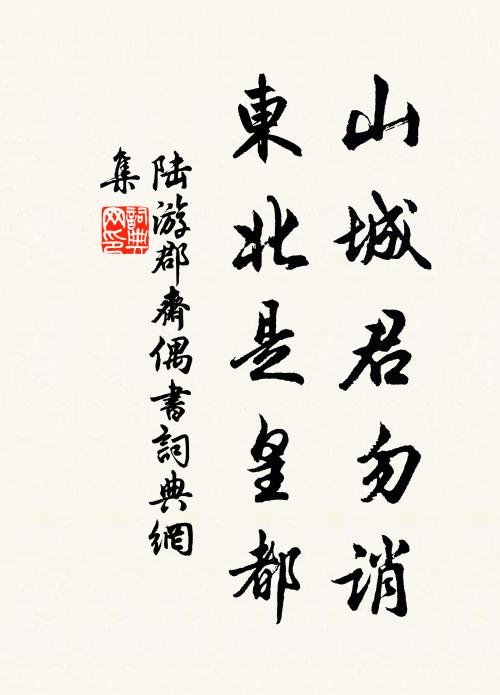 山城君勿誚
東北是皇都
陸游郡齋偶書詞典網
集
詞典网印